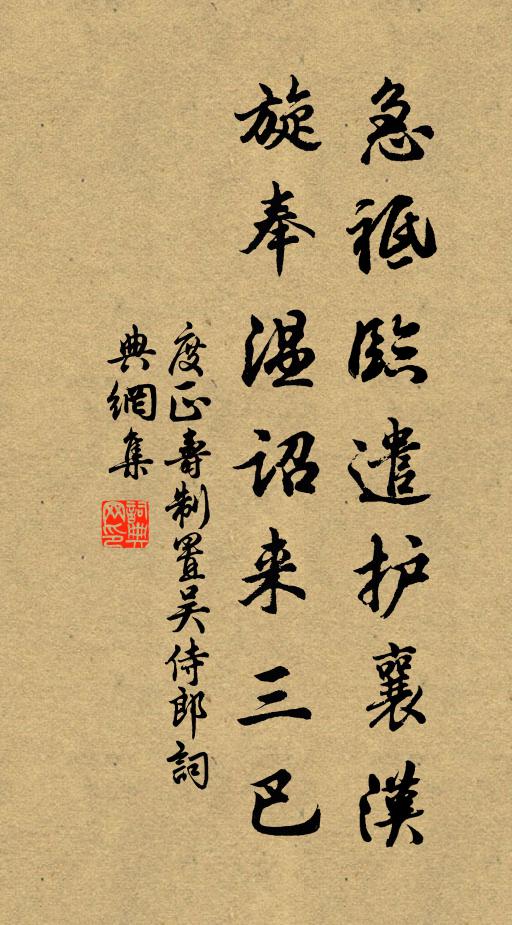 急祗臨遣护襄漢
旋奉温诏来三巴
度正壽制置吴侍郎詞
典網集
詞典
网印